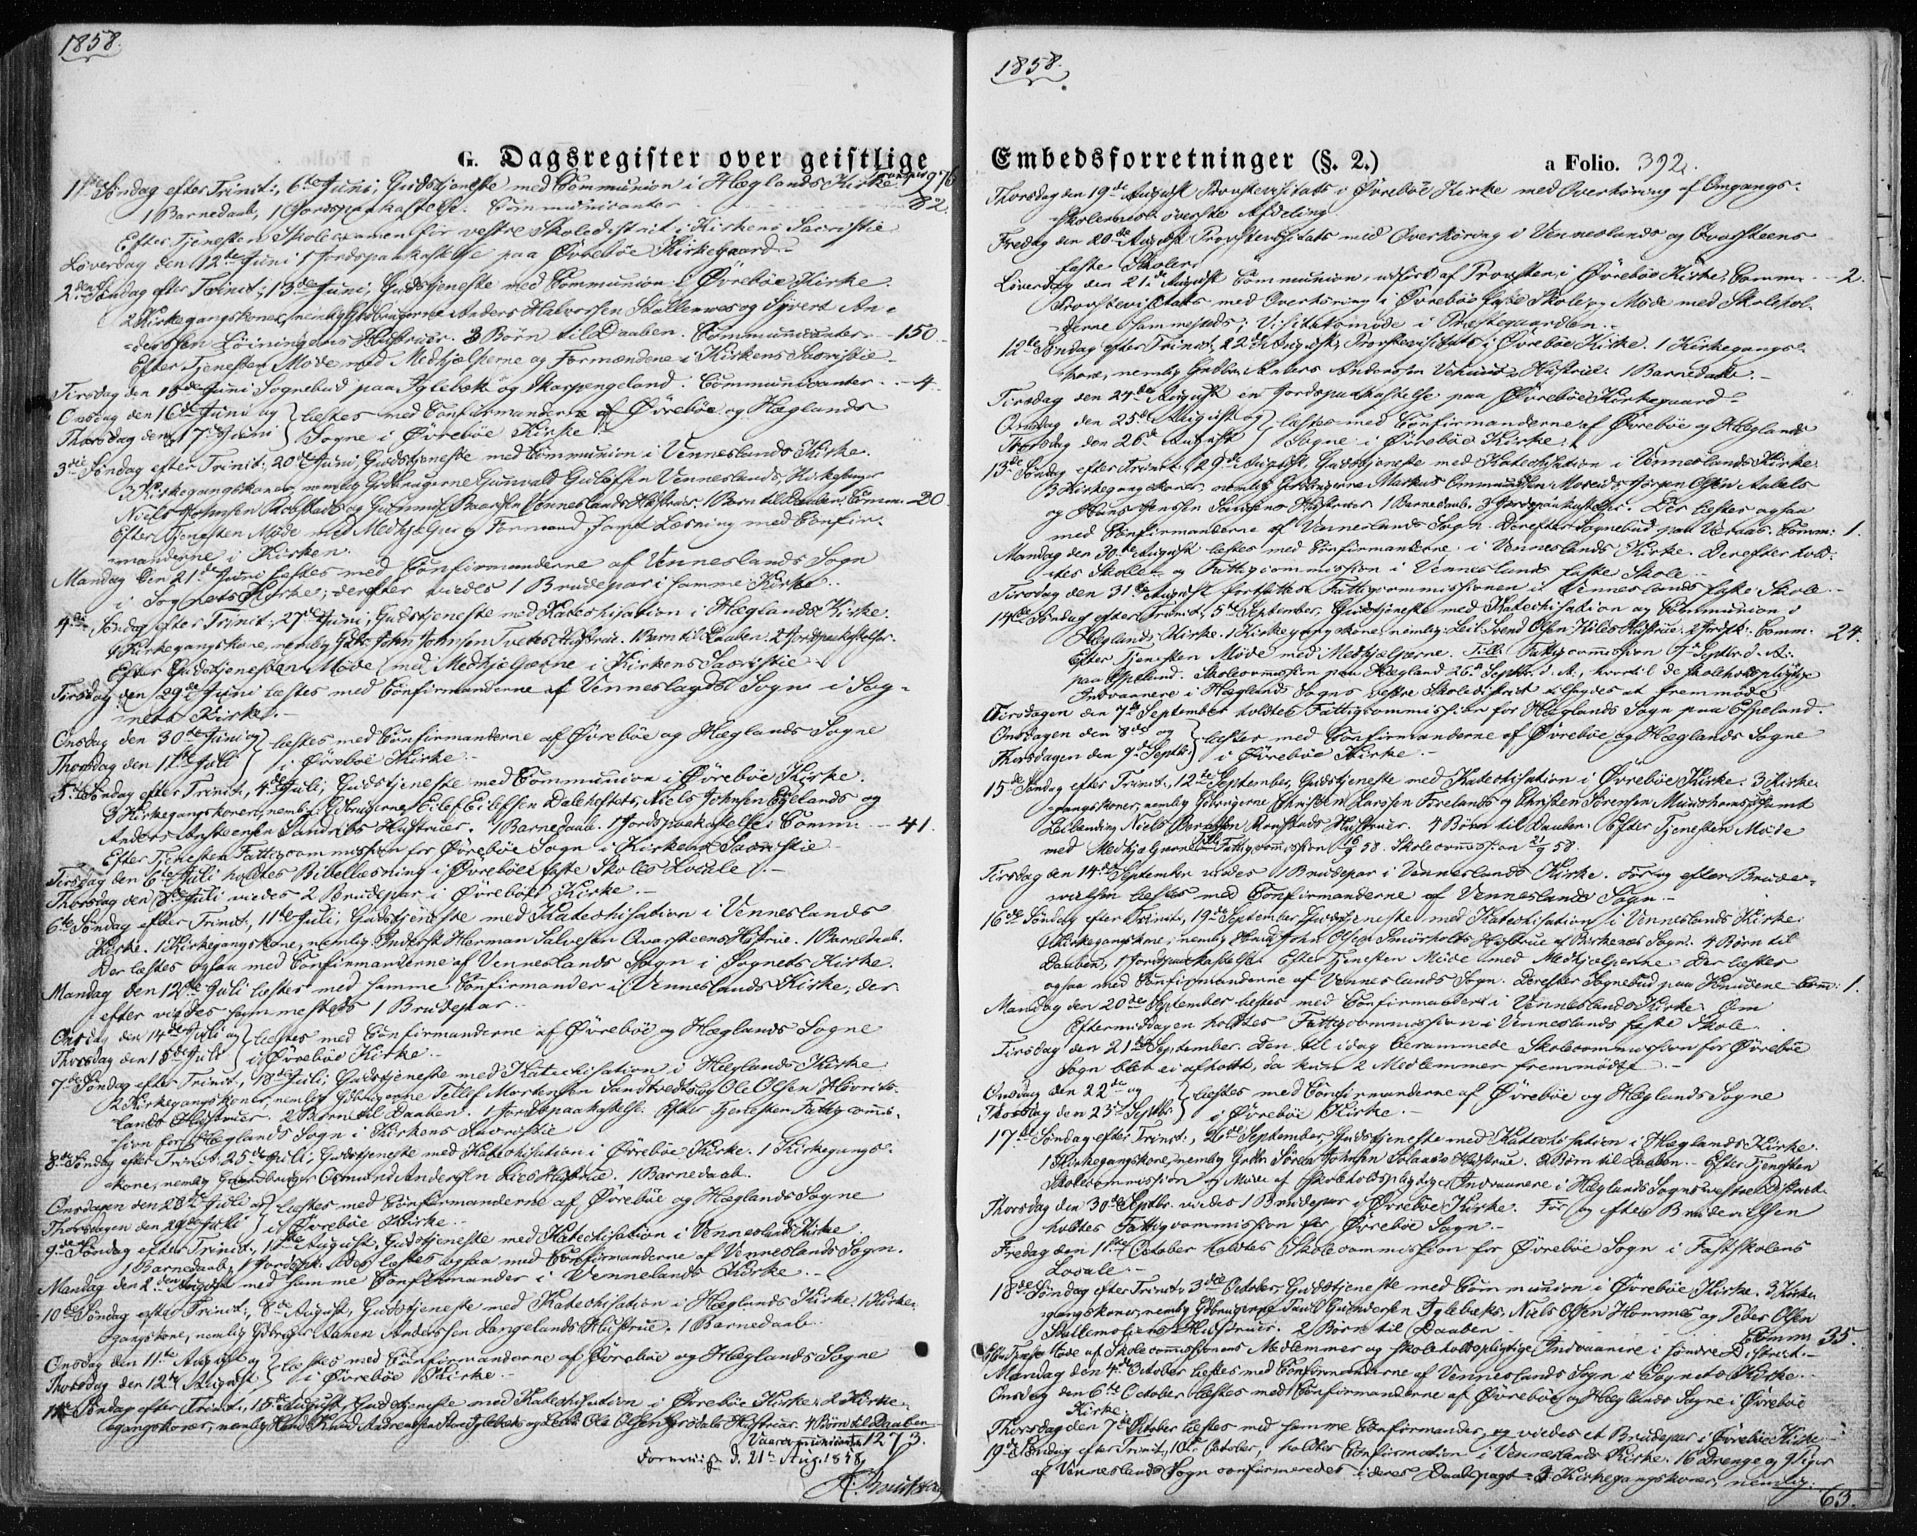 1858.
G. Dagsregister over geistlige
1ste Søndag efter Trinit:, 6te Juni, Gudstjeneste med Communion i Hæglands Kirke. Transport 976
1 Barnedaab, 1 Jordspaakastelse. Communicanter 82.
Efter Tjenesten Skoleexamen for vestre Skoledistrict i Kirkens Sacristie
Løverdag den 12te Juni 1 Jordspaakastelse paa Øvrebøe Kirkegaard.
2den Søndag efter Trinit:, 13de Juni, Gudstjeneste med Communion i Øvrebøe Kirke.
2 Kirkegangskoner, nemlig Gdbrugerne Anders Halvorsen Skallennes og Sivert An-
derssen Løiningens Hustruer. 3 Børn til Daaben. Communicanter - 150.
Efter Tjenesten Møde med Medhjelperne og Formændene i Kirkens Sacristie.
Tirsdag den 15de Juni Sognebud paa Iglebæk og Skarpengeland. Communicanter - 4.
Onsdag den 16de Juni og } læstes med Confirmanderne af Øvrebøe og Hæglands
Thorsdag den 17de Juni } Sogne i Øvrebøe Kirke.
3die Søndag efter Trinit:, 20de Juni, Gudstjeneste med Communion i Venneslands Kirke.
3 Kirkegangskoner, nemlig Gdbrugerne Gunvald Venneslands,
Niels Johnsen og Gunnuf Venneslands Hustruer. 1 Barn til Daaben. Comm: - 20.
Efter Tjenesten Møde med Medhjelper og Formand samt Læsning med Confir-
manderne i Kirken.
Mandag den 21de Juni læstes med Confirmanderne af Venneslands Sogn
i Sognets Kirke; derefter viedes 1 Brudepar i samme Kirke.
4de Søndag efter Trinit:, 27de Juni, Gudstjeneste med Katechisation i Hæglands Kirke.
1 Kirkegangskone, nemlig John Johnsen Tveits Hustrue. 1 Barn til Daaben. 2 Jordspaakastelser.
Efter Gudstjenesten Møde med Medhjelperne i Kirkens Sacristie.
Tirsdag den 29de Juni læstes med Confirmanderne af Venneslands Sogn i Sog-
nets Kirke.
Onsdag den 30de Juni og } læstes med Confirmanderne af Øvrebøe og Hæglands Sogne
Thorsdag den 1ste Juli } i Øvrebøe Kirke.
5te Søndag efter Trinit:, 4de Juli, Gudstjeneste med Communion i Øvrebøe Kirke.
3 Kirkegangskoner, nemlig Gdbrugerne Eilef Eilefsen Dalekeftets, Niels Johnsen Eielands og
Anders Hustruer. 1 Barnedaab. 1 Jordspaakastelse. Comm: - 41.
Efter Tjenesten Fattigcommission for Øvrebøe Sogn i Kirkens Sacristie
Tirsdag den 6te Juli holdtes Bibellæsning i Øvrebøe faste Skoles Locale.
Thorsdag den 8de Juli viedes 2 Brudepar i Øvrebøe Kirke.
6te Søndag efter Trinit:, 11te Juli, Gudstjeneste med Katechisation i Venneslands
Kirke. 1 Kirkegangskone, nemlig Inderst Herman Salvesen Qvarsteens Hustrue. 1 Barnedaab.
Der læstes ogsaa med Confirmanderne af Venneslands Sogn i Sognets Kirke.
Mandag den 12te Juli læstes med samme Confirmander i Venneslands Kirke, der-
efter viedes sammesteds 1 Brudepar.
Onsdag den 14de Juli og } læstes med Confirmanderne af Øvrebøe og Hæglands Sogne
Thorsdag den 15de Juli } i Øvrebøe Kirke.
7de Søndag efter Trinit:, 18de Juli, Gudstjeneste med Katechisation i Hæglands Kirke
2 Kirkegangskoner, nemlig Gdbrugerne Tellef Mortensen Sandtvedts og Ole Olsen
lands Hustruer. 2 Børn til Daaben. 1 Jordspaakastelse. Efter Tjenesten Fattigcommis-
sion for Hæglands Sogn i Kirkens Sacristie
8de Søndag efter Trinit:, 25de Juli, Gudstjeneste med Katechisation i Øvrebøe Kirke. 1 Kirkegangs-
kone, nemlig Gaardbruger Osmund Andersen Lies Hustrue. 1 Barnedaab.
Onsdagen den 28de Juli og } læstes med Confirmanderne af Øvrebøe og Hæglands Sogne
Thorsdagen den 29de Juli } i Øvrebøe Kirke.
9de Søndag efter Trinit:, 1ste August, Gudstjeneste med Katechisation i Venneslands Kirke
1 Barnedaab, 1 Jordspk. Der læstes ogsaa med Confirmanderne af Venneslands Sogn.
Mandag den 2den August med samme Confirmander i Venneslands Kirke.
10de Søndag efter Trinit:, 8de August, Gudstjeneste med Katechisation i Hæglands Kirke. 1 Kirke-
gangskone, nemlig Gdbruger Aanen Anderssen Langelands Hustrue. 1 Barnedaab.
Onsdag den 11te August og } læstes med Confirmanderne af Øvrebøe og Hæglands Sogne
Thorsdag den 12te August } i Øvrebøe Kirke.
11te Søndag efter Trinit:, 15de August, Gudstjeneste med Katechisation i Øvrebøe Kirke. 2 Kirke-
gangskoner, nemlig Iglebæks og Ole Olsen Hustruer. 4 Børn til Daaben
1273.
d. 21de Aug. 1858
1858.
Embedsforretninger (§. 2.)
a Folio. 392.
Thorsdag den 19de August Provstevisitats i Øvrebøe Kirke med Overhøring af Omgangs-
skolernes øverste Afdeling.
Fredag den 20de August Provstevisitats med Overhøring i Venneslands og Qvarsteens
faste Skoler.
Løverdag den 21de August Communion, udført af Provsten, i Øvrebøe Kirke. Comm: - 2.
Provstevisitats med Overhøring i Øvrebøe faste Skole og Møde med Skolehol-
derne sammesteds; Visitatsmøde i Præstegaarden.
12te Søndag efter Trinit:, 22de August, Provstevisitats i Øvrebøe Kirke. 1 Kirkegangs-
kone, nemlig Gdbr. Anders Andersen Hustrue. 1 Barnedaab.
Tirsdag den 24de August en Jordspaakastelse paa Øvrebøe Kirkegaard.
Onsdag den 25de August og } læstes med Confirmanderne af Øvrebøe og Hæglands
Thorsdag den 26de August } Sogne i Øvrebøe Kirke.
13de Søndag efter Trinit:, 29de August, Gudstjeneste med Katechisation i Venneslands Kirke.
3 Kirkegangskoner, nemlig Gdbrugerne Markus Jørgen Olsen Aabels
og Hans Jensen Hustruer. 1 Barnedaab. Jordspaakastelse. Der læstes ogsaa
med Confirmanderne af Venneslands Sogn. Derefter Sognebud paa Comm: 1.
Mandag den 30te August læstes med Confirmanderne i Venneslands Kirke. Derefter hold-
tes Skole- og Fattigcommission i Venneslands faste Skole
Tirsdag den 31te August fortsattes Fattigcommissionen i Venneslands faste Skole.
14de Søndag efter Trinit:, 5te September, Gudstjeneste med Katechisation og Communion i
Hæglands Kirke. 1 Kirkegangskone, nemlig Leil. Svend Olsen Hustrue. 2 Jordsk: Comm: - 24.
Efter Tjenesten Møde med Medhjelperne. Fattigcommission 7de Septbr. d. A.
paa Espeland. Skolecommission paa Hægland 26de Septbr. d. A., hvortil de skoleholdspligtige
Indvaanere i Hæglands Sogns vestre Skoledistrict tilsagdes at fremmøde
Tirsdagen den 7de September holdtes Fattigcommission for Hæglands Sogn paa Espeland.
Onsdagen den 8de og } læstes med Confirmanderne af Øvrebøe og Hæglands Sogne
Thorsdagen den 9de Septbr. } i Øvrebøe Kirke.
15de Søndag efter Trinit:, 12te September, Gudstjeneste med Katechisation i Øvrebøe Kirke. 3 Kirke-
gangskoner, nemlig Gdbrugerne Christen Larssen Førelands og Christen Sørensen samt
Leilending Niels Hustruer. 4 Børn til Daaben. Efter Tjenesten Møde
med Medhjelperne. Fattigcommission 30/9 58. Skolecommission 21/9 58.
Tirsdag den 14de September viedes 1 Brudepar i Venneslands Kirke. Før og efter Brude-
vielsen læstes med Confirmanderne af Venneslands Sogn.
16de Søndag efter Trinit:, 19de September, Gudstjeneste med Katechisation i Venneslands Kirke.
1 Kirkegangskone, nemlig John Olsen Hustrue af Birkenes Sogn. 4 Børn til
Daaben, 1 Jordspaakastelse. Efter Tjenesten Møde med Medhjelperne. Der læstes
ogsaa med Confirmanderne af Venneslands Sogn. Derefter Sognebud paa Honndene Com: 1.
Mandag den 20de September læstes med Confirmanderne i Venneslands Kirke. Om
Eftermiddagen holdtes Fattigcommission i Venneslands faste Skole.
Tirsdag den 21de September. Den til idag berammede Skolecommission for Øvrebøe
Sogn blev ei afholdt, da kun 2 Medlemmer fremmødte.
Onsdag den 22de og } læstes med Confirmanderne af Øvrebøe og Hæglands Sogne
Thorsdag den 23de Septbr. } i Øvrebøe Kirke.
17de Søndag efter Trinit:, 26de September, Gudstjeneste med Katechisation i Hæglands Kirke.
1 Kirkegangskone, nemlig Gdbr. Søren Johnsen Solaas's Hustrue. 2 Børn til Daaben. Efter Tjenesten
Skolecommission og Møde af skoleholdspligtige Indvaanere i Hæglands Sogns vestre District.
Thorsdag den 30te Septbr. viedes 1 Brudepar i Øvrebøe Kirke. Før og efter Brudevielsen
holdtes Fattigcommission for Øvrebøe Sogn.
Fredag den 1ste October holdtes Skolecommission for Øvrebøe Sogn i Fastskolens
Locale.
18de Søndag efter Trinit:, 3die October, Gudstjeneste med Communion i Øvrebøe Kirke. 3 Kirke-
gangskoner, nemlig Gdbrugerne Gundersen Iglebæks, Niels Olsen Hommes og Peder Olsen
Skallemoens Hustruer. 2 Børn til Daaben. Comm: 35.
Efter Tjenesten Møde af Skolecommissionens Medlemmer og skoleholdspligtige Indvaanere i søndre District.
Mandag den 4de October læstes med Confirmanderne af Venneslands Sogn i Sognets Kirke.
Onsdag den 6te October læstes med Confirmanderne af Øvrebøe og Hæglands Sogne i Øvrebøe
Kirke.
Thorsdag den 7de October læstes med samme Confirmander, og viedes et Brudepar i Øvrebøe Kirke
19de Søndag efter Trinit:, 10de October, holdtes Confirmation i Venneslands Kirke. 16 Drenge og 9 Piger
af Venneslands Sogn confirmeredes i deres Daabspagt. 3 Kirkegangskoner, nemlig:
63.